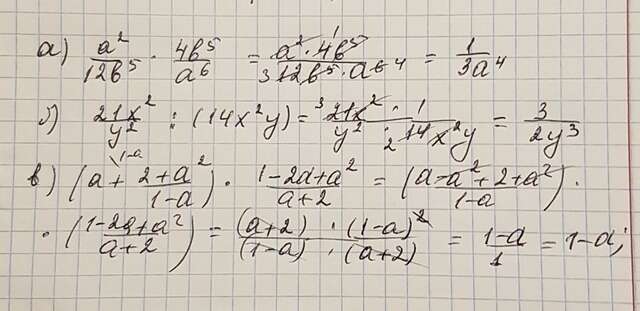 а) a²/12b⁵ · 4b⁵/a⁶ = a²·4b⁵/12b⁵·a⁶ 1 3 4 = 1/3a⁴
б) 21x²/y² : (14x²y) = 21x²·1/y²·14x²y 3 2 = 3/2y³
в) (a + 2+a²/1-a) · 1-2a+a²/a+2 = (a-a²+2+a²/1-a) · 1-a
· (1-2a+a²/a+2) = (a+2)·(1-a)²/(1-a)·(a+2) = 1-a/1 = 1-a;